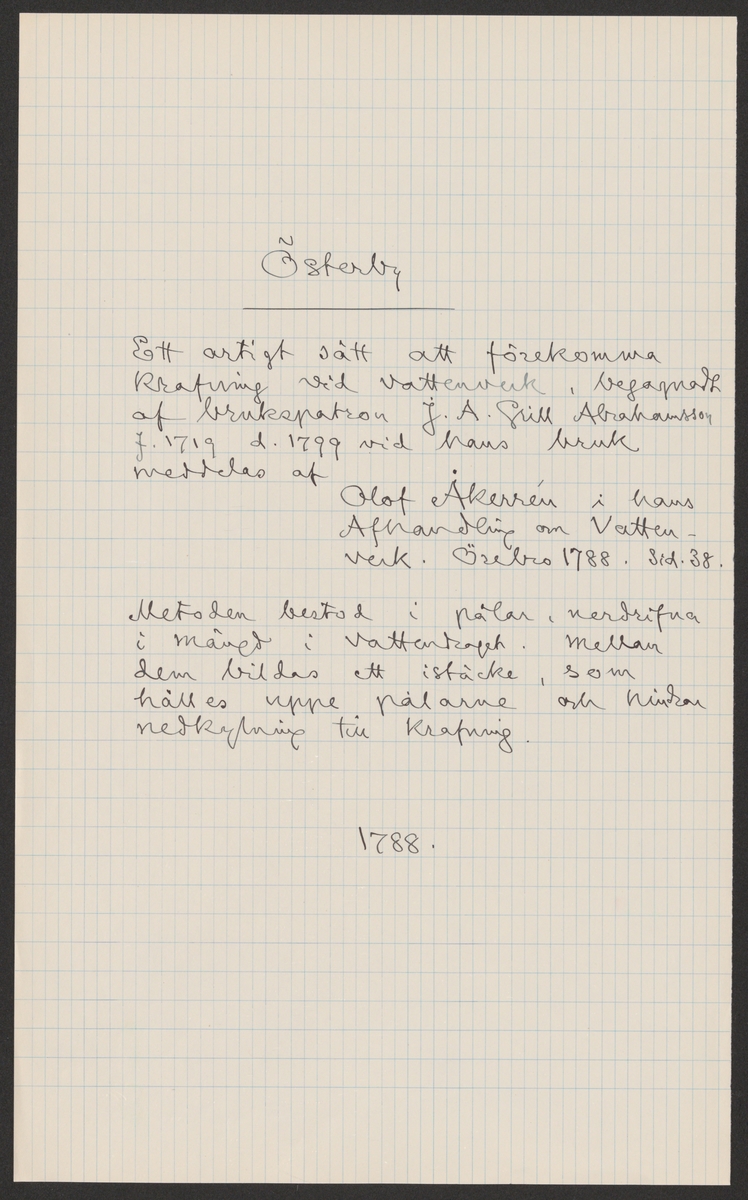 Österby
Ett artigt sätt att förekomma
krafning vid vattenverk, begagnadt
af brukspatron J. A. Grill Abrahamsson
f. 1719 d. 1799 vid hans bruk
meddelas af
Olof Åkerrén i hans
Afhandling om Vatten-
verk. Örebro 1788. Sid. 38.
Metoden bestod i pålar, nerdrifna
i mängd i vattendraget. Mellan
dem bildas ett istäcke, som
hålles uppe pålarne och hindrar
nedkylning till krafning.
1788.